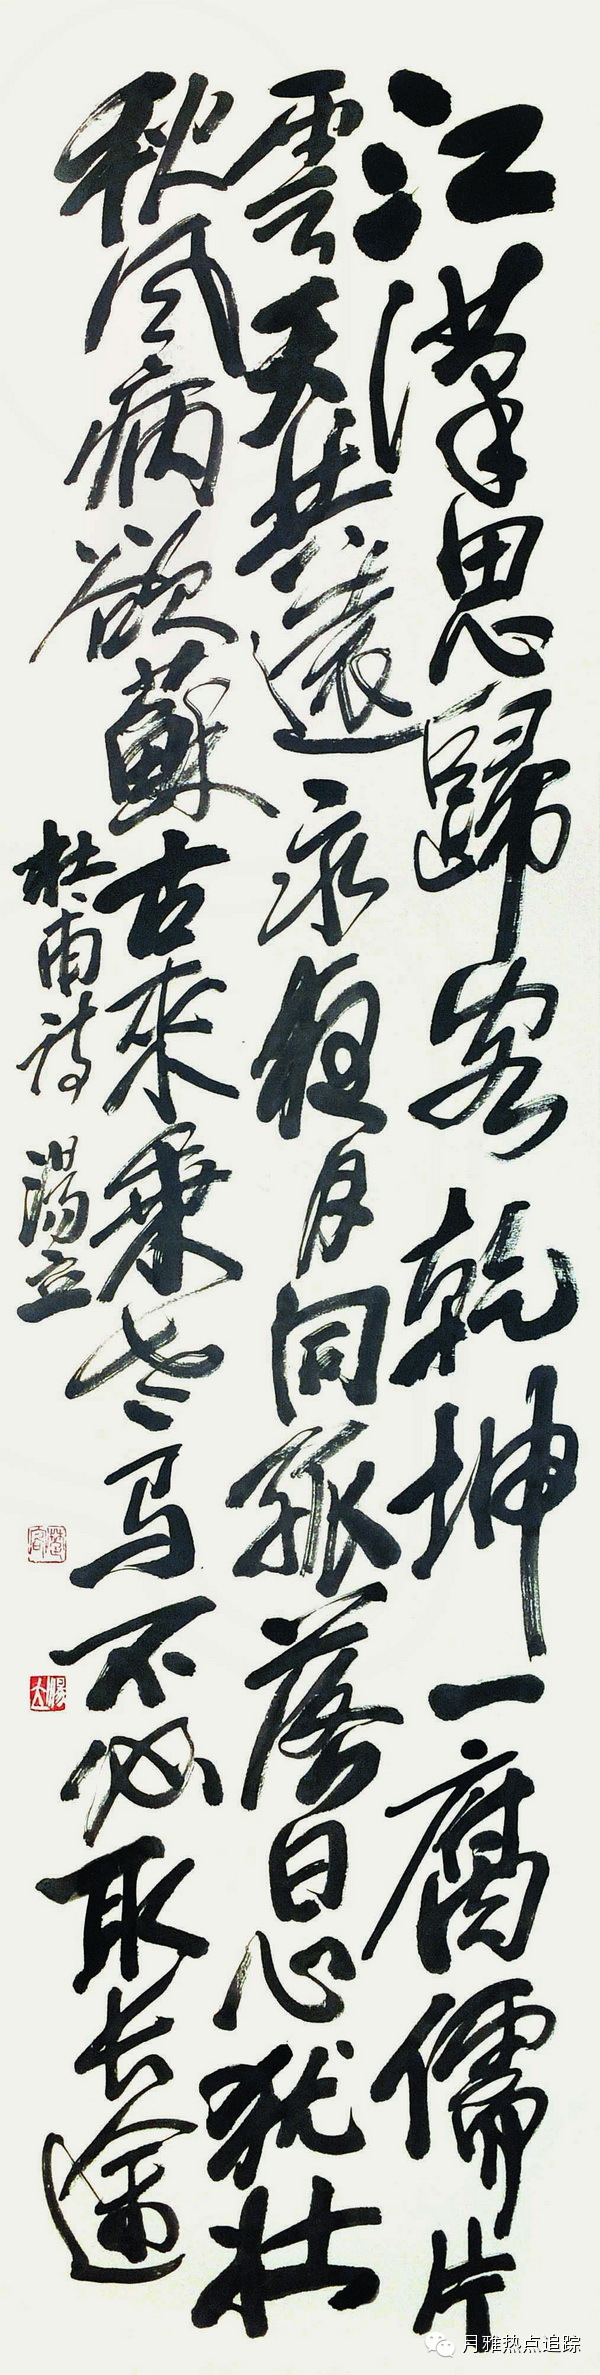 江漢思歸客乾坤一腐儒片
雲天共遠永夜月同孤落日心猶壯
秋风病欲蘇古來乘老马不必取长途
杜甫詩 湯立
月雅热点追踪